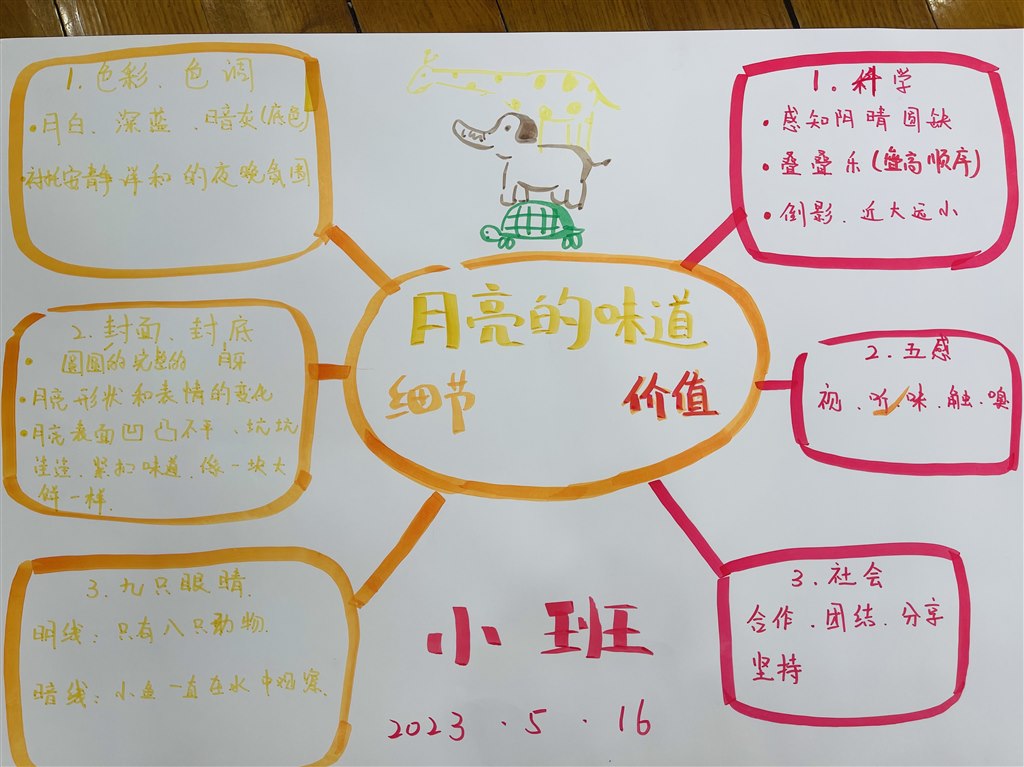 1. 色彩、色调
• 月白、深蓝、暗灰(底色)
• 衬托安静祥和的夜晚氛围
2. 封面、封底
• 圆圆的完整的 月牙
• 月亮形状和表情的变化
• 月亮表面凹凸不平、坑坑
洼洼、紧扣味道、像一块大
饼一样.
3. 九只眼睛
明线: 只有八只动物.
暗线: 小鱼一直在水中观察.
月亮的味道
细节 价值
1. 科学
• 感知阴晴圆缺
• 叠叠乐(叠高顺序)
• 倒影、近大远小
2. 五感
视、听、味、触、嗅
3. 社会
合作、团结、分享
坚持
小班
2023.5.16